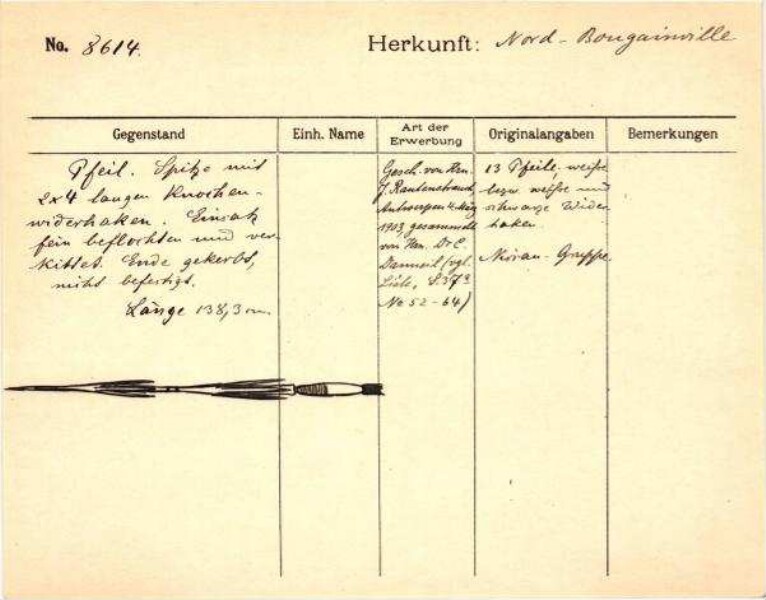 No. 8614.
Herkunft: Nord-Bougainville
Gegenstand
Einh. Name
Art der
Erwerbung
Originalangaben
Bemerkungen
Pfeil. Spitze mit
2x4 langen Knochen-
widerhaken. Einsatz
fein beflochten und ver-
kittet. Ende gekerbt,
nicht befestigt.
Länge 138,3 cm.
Gesch. von Hrn.
J. Rautenstrauch,
Antwerpen 4. März
1903, gesammelt
von Hrn. Dr C.
Danneil (vgl.
Liste, S. 37
No 52-64)
13 Pfeile, weiße
bzw. weiße und
schwarze Wider
haken.
Nissan-Gruppe.